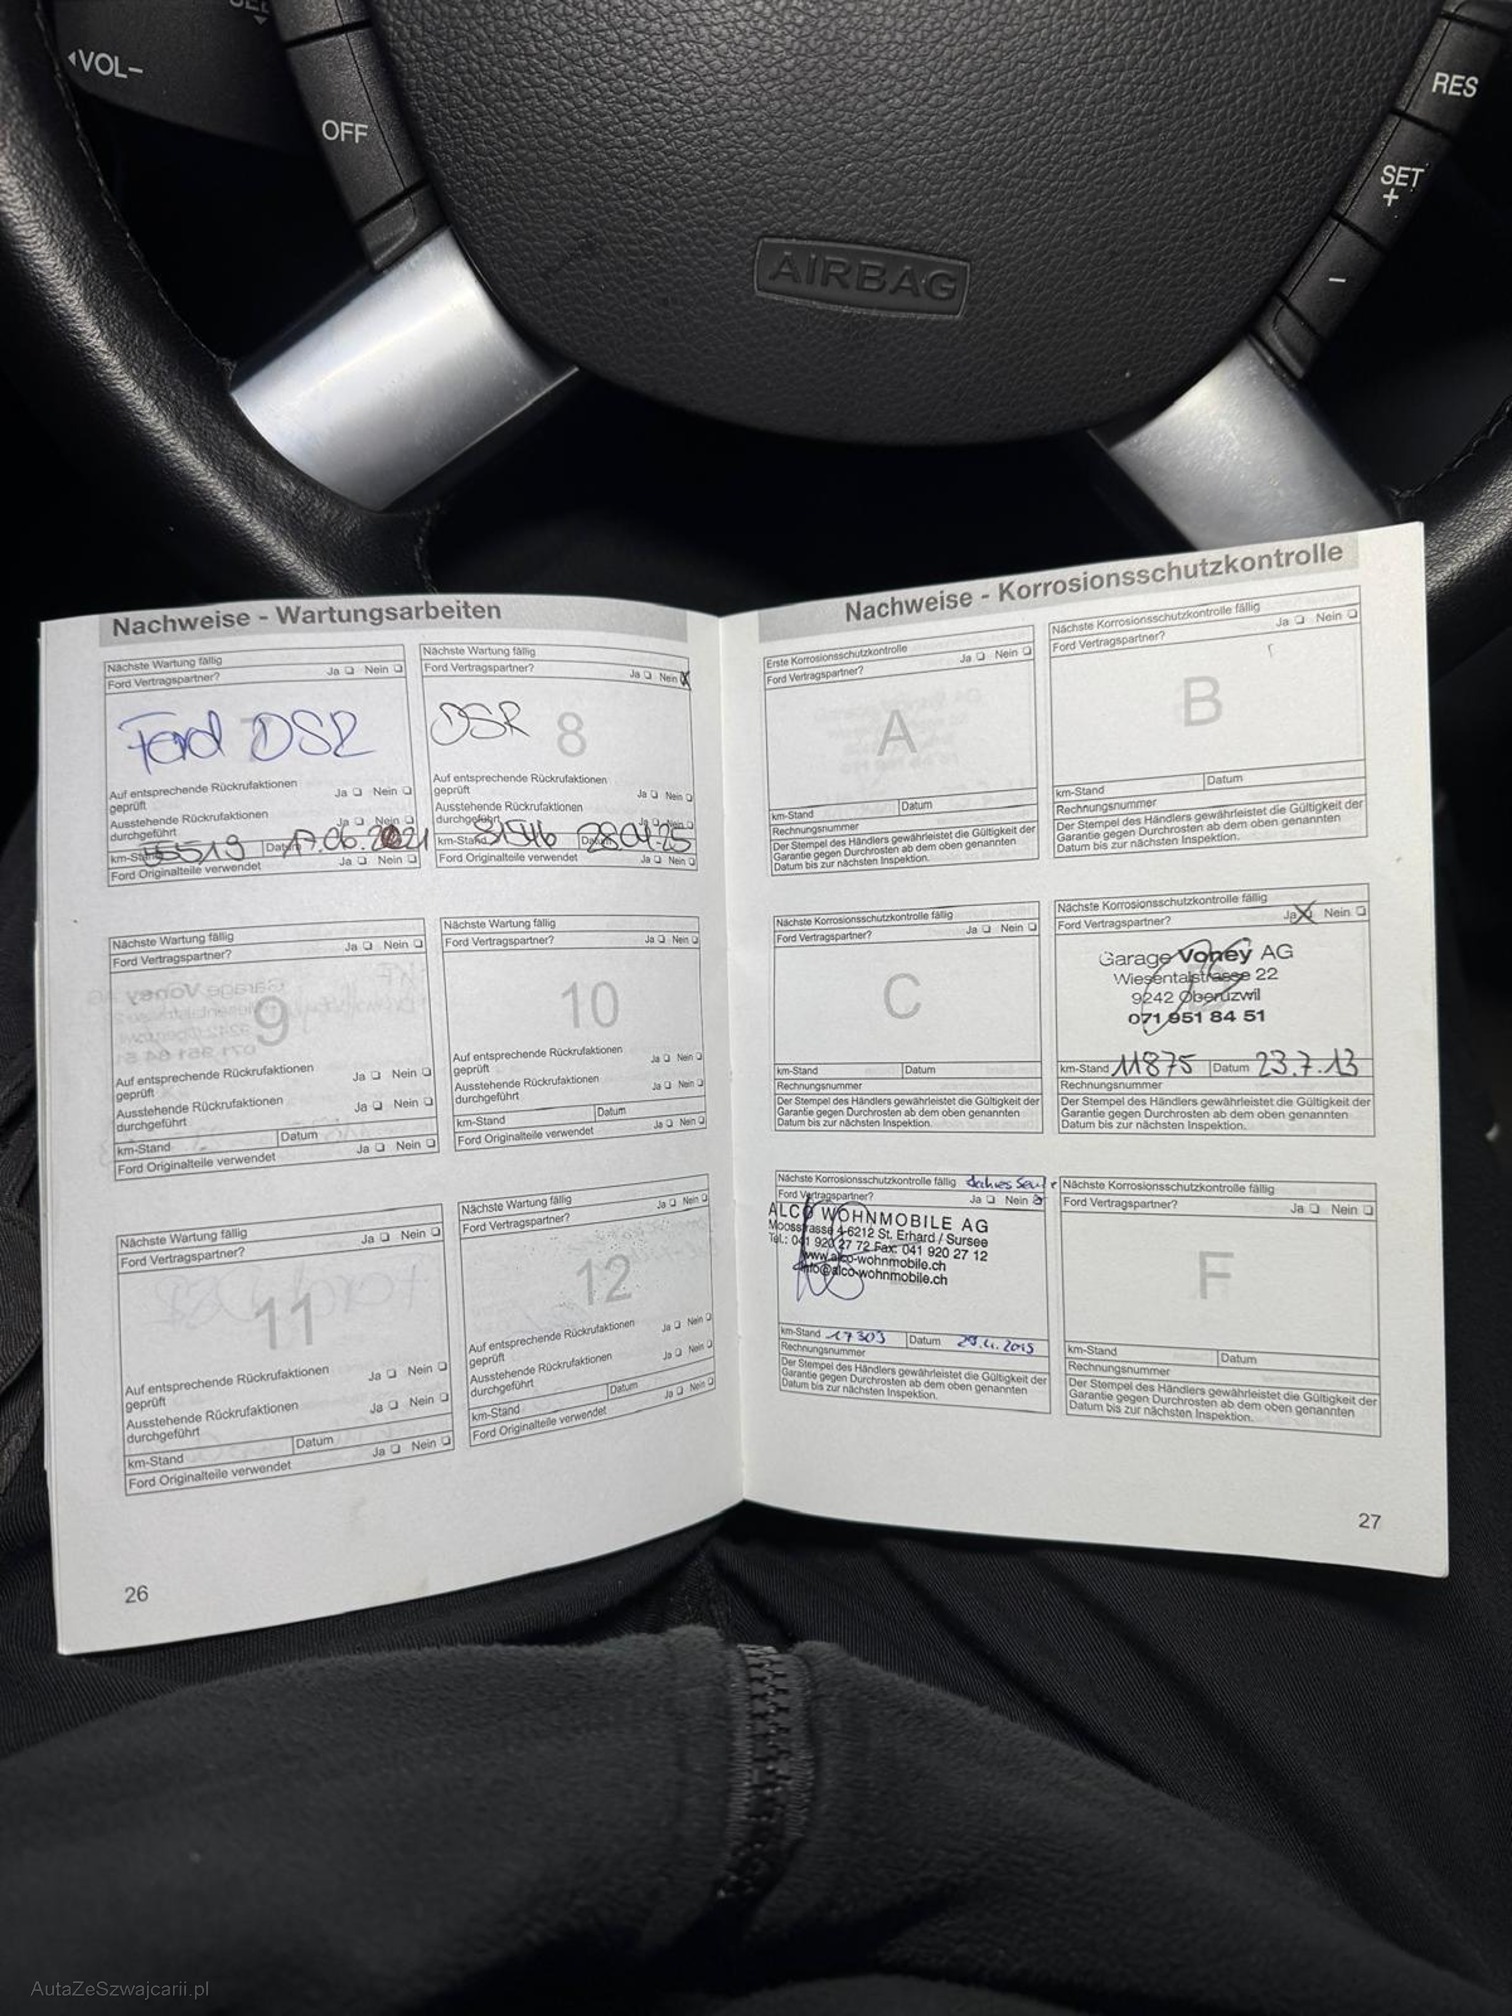 VOL–
OFF
RES
SET
+
–
AIRBAG
Nachweise - Wartungsarbeiten
Nächste Wartung fällig
Ford Vertragspartner? Ja Nein
Ford DSR
Auf entsprechende Rückrufaktionen
geprüft Ja Nein
Ausstehende Rückrufaktionen
durchgeführt Ja Nein
km-Stand Datum 17.06.2021
Ford Originalteile verwendet Ja Nein
Nächste Wartung fällig
Ford Vertragspartner? Ja Nein
DSR 8
Auf entsprechende Rückrufaktionen
geprüft Ja Nein
Ausstehende Rückrufaktionen
durchgeführt Ja Nein
km-Stand 81546 Datum 28.04.25
Ford Originalteile verwendet Ja Nein
Nächste Wartung fällig
Ford Vertragspartner? Ja Nein
9
Auf entsprechende Rückrufaktionen
geprüft Ja Nein
Ausstehende Rückrufaktionen
durchgeführt Ja Nein
km-Stand Datum
Ford Originalteile verwendet Ja Nein
Nächste Wartung fällig
Ford Vertragspartner? Ja Nein
10
Auf entsprechende Rückrufaktionen
geprüft Ja Nein
Ausstehende Rückrufaktionen
durchgeführt Ja Nein
km-Stand Datum
Ford Originalteile verwendet Ja Nein
Nächste Wartung fällig
Ford Vertragspartner? Ja Nein
11
Auf entsprechende Rückrufaktionen
geprüft Ja Nein
Ausstehende Rückrufaktionen
durchgeführt Ja Nein
km-Stand Datum
Ford Originalteile verwendet Ja Nein
Nächste Wartung fällig
Ford Vertragspartner? Ja Nein
12
Auf entsprechende Rückrufaktionen
geprüft Ja Nein
Ausstehende Rückrufaktionen
durchgeführt Ja Nein
km-Stand Datum
Ford Originalteile verwendet Ja Nein
26
Nachweise - Korrosionsschutzkontrolle
Erste Korrosionsschutzkontrolle
Ford Vertragspartner? Ja Nein
A
km-Stand Datum
Rechnungsnummer
Der Stempel des Händlers gewährleistet die Gültigkeit der
Garantie gegen Durchrosten ab dem oben genannten
Datum bis zur nächsten Inspektion.
Nächste Korrosionsschutzkontrolle fällig
Ford Vertragspartner? Ja Nein
B
km-Stand Datum
Rechnungsnummer
Der Stempel des Händlers gewährleistet die Gültigkeit der
Garantie gegen Durchrosten ab dem oben genannten
Datum bis zur nächsten Inspektion.
Nächste Korrosionsschutzkontrolle fällig
Ford Vertragspartner? Ja Nein
C
km-Stand Datum
Rechnungsnummer
Der Stempel des Händlers gewährleistet die Gültigkeit der
Garantie gegen Durchrosten ab dem oben genannten
Datum bis zur nächsten Inspektion.
Nächste Korrosionsschutzkontrolle fällig
Ford Vertragspartner? Ja Nein
Garage Voney AG
Wiesentalstrasse 22
9242 Oberuzwil
071 951 84 51
km-Stand 11875 Datum 23.7.13
Rechnungsnummer
Der Stempel des Händlers gewährleistet die Gültigkeit der
Garantie gegen Durchrosten ab dem oben genannten
Datum bis zur nächsten Inspektion.
Nächste Korrosionsschutzkontrolle fällig
Ford Vertragspartner? Ja Nein
ALCO WOHNMOBILE AG
Moosstrasse 4-6212 St. Erhard / Sursee
Tel.: 041 920 27 72 Fax: 041 920 27 12
www.alco-wohnmobile.ch
info@alco-wohnmobile.ch
km-Stand 17303 Datum 2015
Rechnungsnummer
Der Stempel des Händlers gewährleistet die Gültigkeit der
Garantie gegen Durchrosten ab dem oben genannten
Datum bis zur nächsten Inspektion.
Nächste Korrosionsschutzkontrolle fällig
Ford Vertragspartner? Ja Nein
F
km-Stand Datum
Rechnungsnummer
Der Stempel des Händlers gewährleistet die Gültigkeit der
Garantie gegen Durchrosten ab dem oben genannten
Datum bis zur nächsten Inspektion.
27
AutaZeSzwajcarii.pl